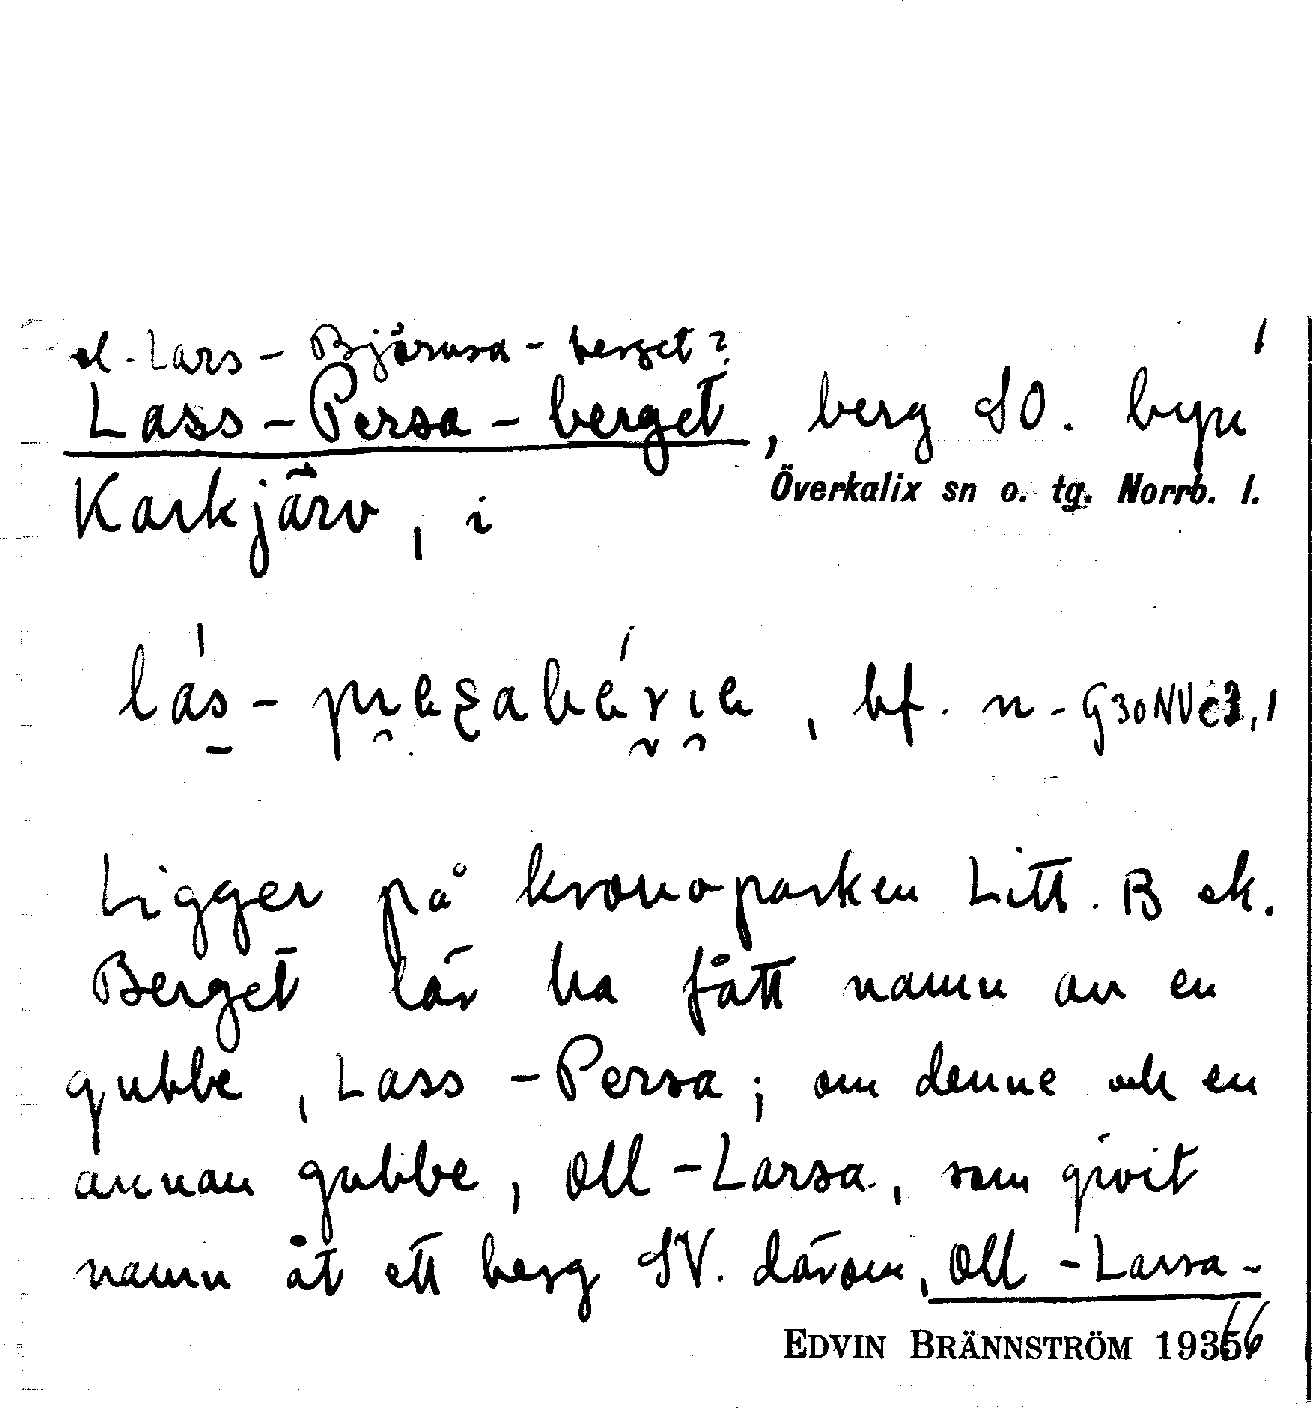 1
el. Lars-Björnsa-berget?
Lass-Persa-berget, berg SO. byn
Karkjärv, i Överkalix sn o. tg. Norrb. l.
bf. n- G30NV
Ligger på kronoparken Litt. B ek.
Berget lär ha fått namn av en
gubbe, Lass-Persa; om denne och en
annan gubbe, Oll-Larsa, som givit
namn åt ett berg SV. därom, Oll-Larsa-
EDVIN BRÄNNSTRÖM 193